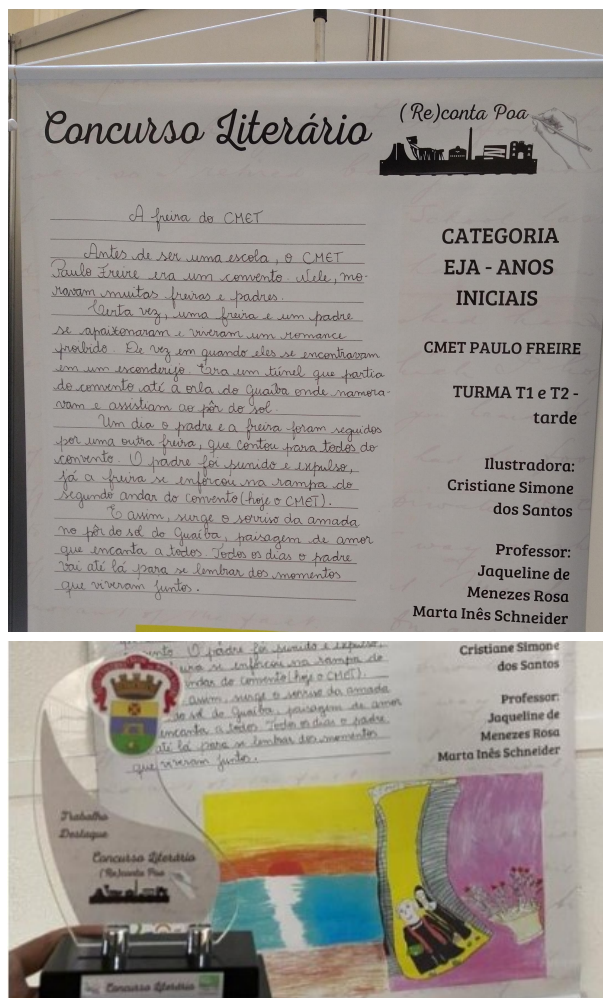 Concurso Literário
(Re)conta Poa
A freira do CMET
Antes de ser uma escola, o CMET
Paulo Freire era um convento. Nele, mo-
ravam muitas freiras e padres.
Certa vez, uma freira e um padre
se apaixonaram e viveram um romance
proibido. De vez em quando eles se encontravam
em um esconderijo. Era um túnel que partia
do convento até a orla do Guaíba onde namora-
vam e assistiam ao pôr do sol.
Um dia o padre e a freira foram seguidos
por uma outra freira, que contou para todos do
convento. O padre foi punido e expulso,
já a freira se enforcou na rampa do
segundo andar do convento (hoje o CMET).
E assim, surge o sorriso da amada
no pôr do sol do Guaíba, paisagem de amor
que encanta a todos. Todos os dias o padre
vai até lá para se lembrar dos momentos
que viveram juntos.
CATEGORIA
EJA - ANOS
INICIAIS
CMET PAULO FREIRE
TURMA T1 e T2 -
tarde
Ilustradora:
Cristiane Simone
dos Santos
Professor:
Jaqueline de
Menezes Rosa
Marta Inês Schneider
O padre foi punido e expulso,
freira se enforcou na rampa do
andar do convento (hoje o CMET).
assim, surge o sorriso da amada
do sol do Guaíba, paisagem de amor
encanta a todos. Todos os dias o padre
até lá para se lembrar dos momentos
que viveram juntos.
Cristiane Simone
dos Santos
Professor:
Jaqueline de
Menezes Rosa
Marta Inês Schneider
Trabalho
Destaque
Concurso Literário
(Re)conta Poa
Concurso Literário